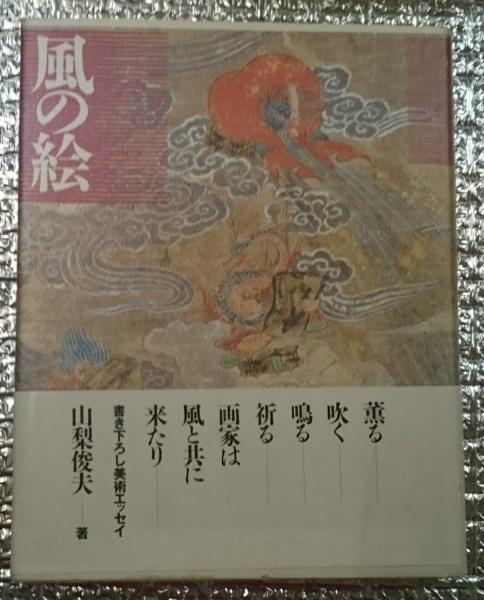 風の絵
薫る——
吹く——
鳴る——
祈る——
画家は
風と共に
来たり——
書き下ろし美術エッセイ
山梨俊夫——著